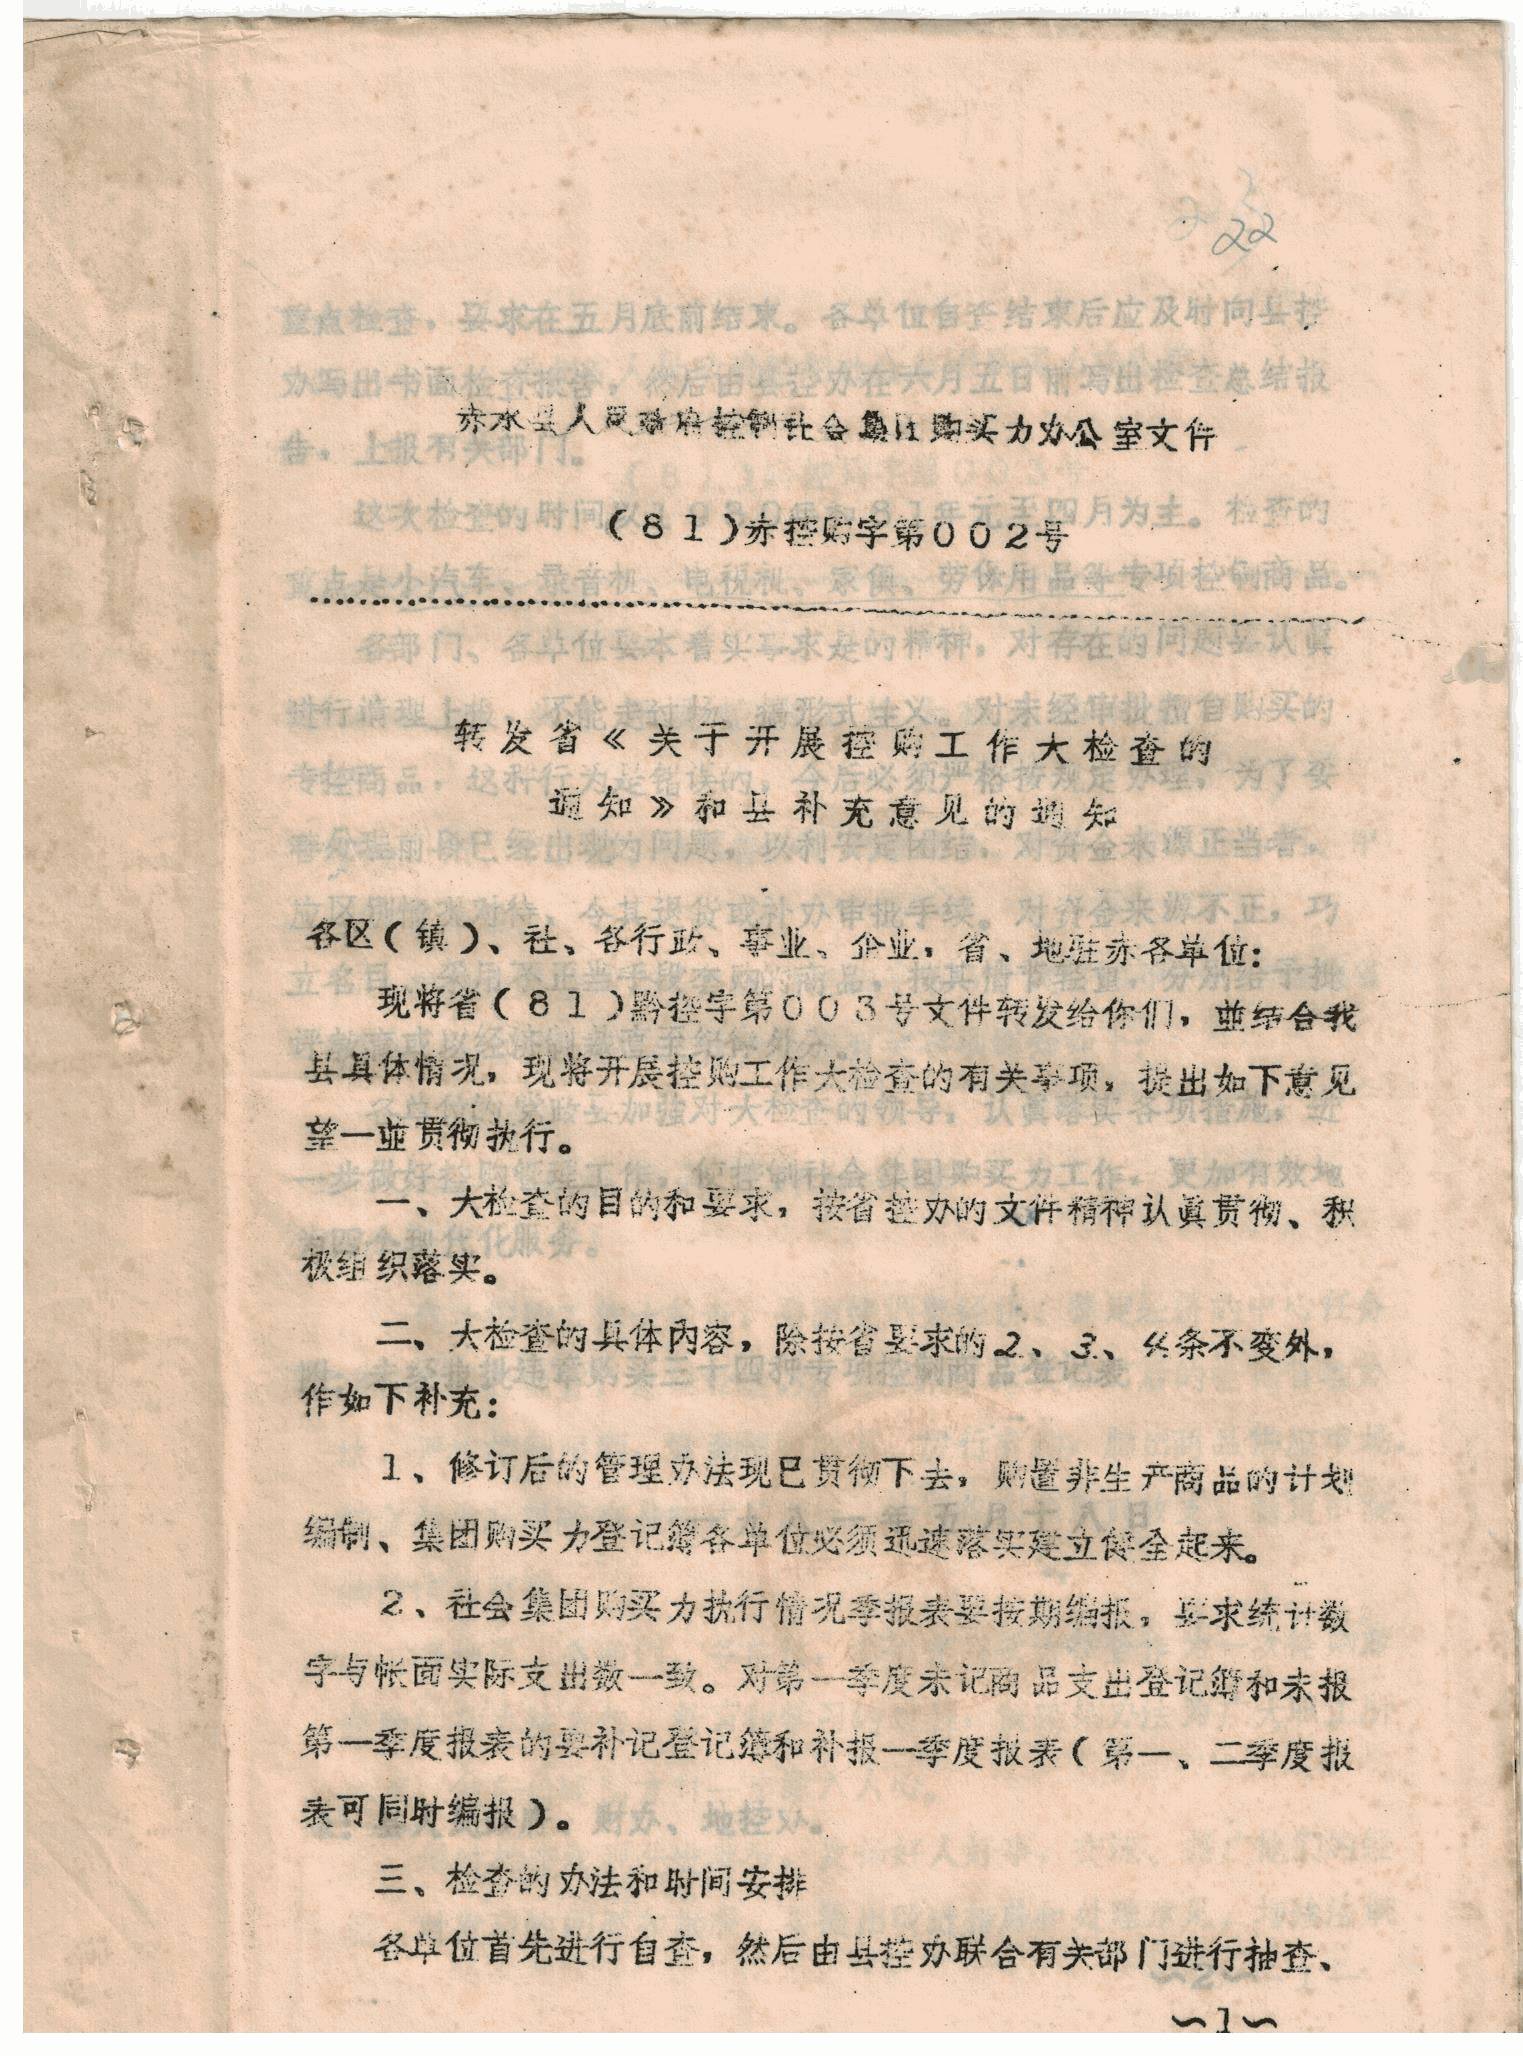 22
赤水县人民政府控制社会集团购买力办公室文件
(81)赤控购字第002号
转发省《关于开展控购工作大检查的
通知》和县补充意见的通知
各区(镇)、社、各行政、事业、企业,省、地驻赤各单位:
现将省(81)黔控字第003号文件转发给你们,並结合我
县具体情况,现将开展控购工作大检查的有关事项,提出如下意见
望一並贯彻执行。
一、大检查的目的和要求,按省控办的文件精神认真贯彻、积
极组织落实。
二、大检查的具体内容,除按省要求的2、3、4条不变外,
作如下补充:
1、修订后的管理办法现已贯彻下去,购置非生产商品的计划
编制、集团购买力登记簿各单位必须迅速落实建立健全起来。
2、社会集团购买力执行情况季报表要按期编报,要求统计数
字与帐面实际支出数一致。对第一季度未记商品支出登记簿和未报
第一季度报表的要补记登记簿和补报一季度报表(第一、二季度报
表可同时编报)。
三、检查的办法和时间安排
各单位首先进行自查,然后由县控办联合有关部门进行抽查、
~1~